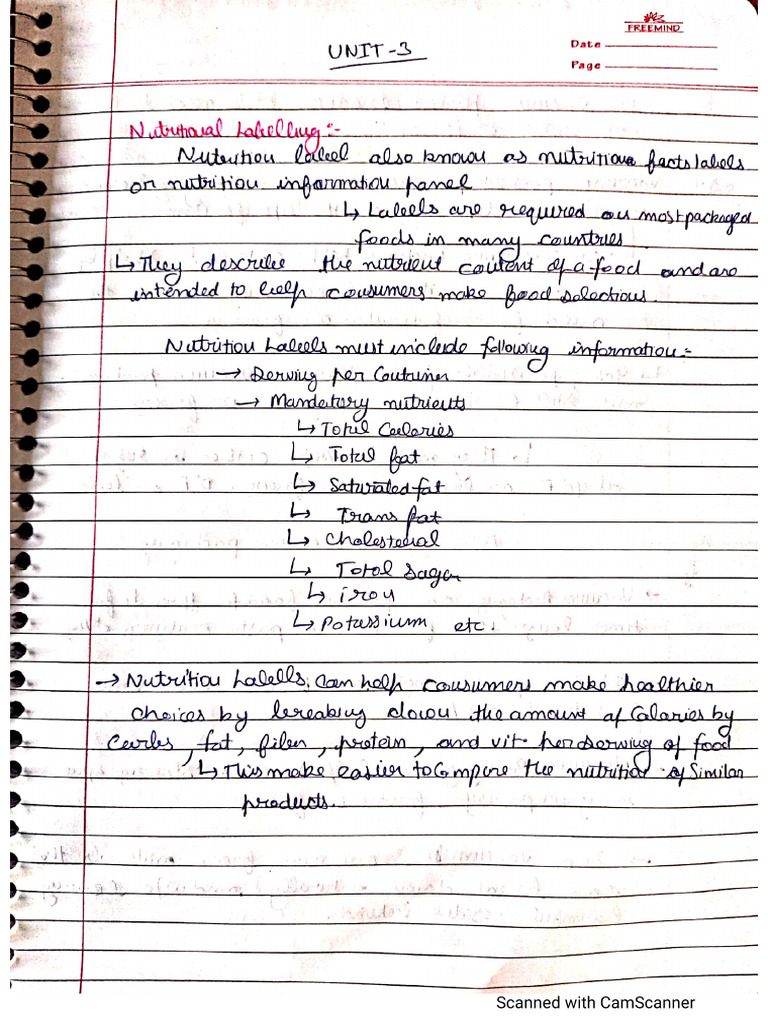 FREEMIND
UNIT-3
Date
Page
Nutritional Labelling:-
Nutrition label also known as nutrition facts labels
or nutrition information panel
↳ Labels are required on most packaged
foods in many countries.
↳ They describe the nutrient content of a food and are
intended to help consumers make food selections.
Nutrition Labels must include following information:-
→ Serving per Container
→ Mandatory nutrients
↳ Total Calories
↳ Total fat
↳ Saturated fat
↳ Trans fat
↳ Cholesterol
↳ Total Sugar
↳ iron
↳ Potassium etc.
→ Nutrition Labells can help consumers make healthier
choices by breaking down the amount of Calories by
Carbs, fat, fiber, protein, and vit per serving of food
↳ This make easier to Compare the nutrition of Similar
products.
Scanned with CamScanner